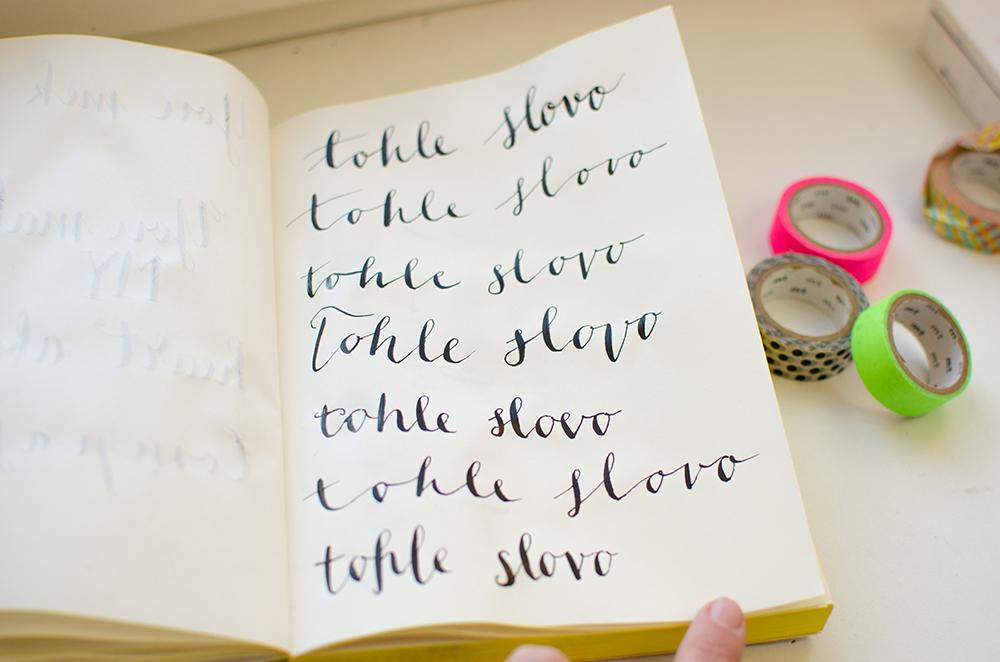 tohle slovo
tohle slovo
tohle slovo
Tohle slovo
tohle slovo
tohle slovo
tohle slovo
mt
mt
mt